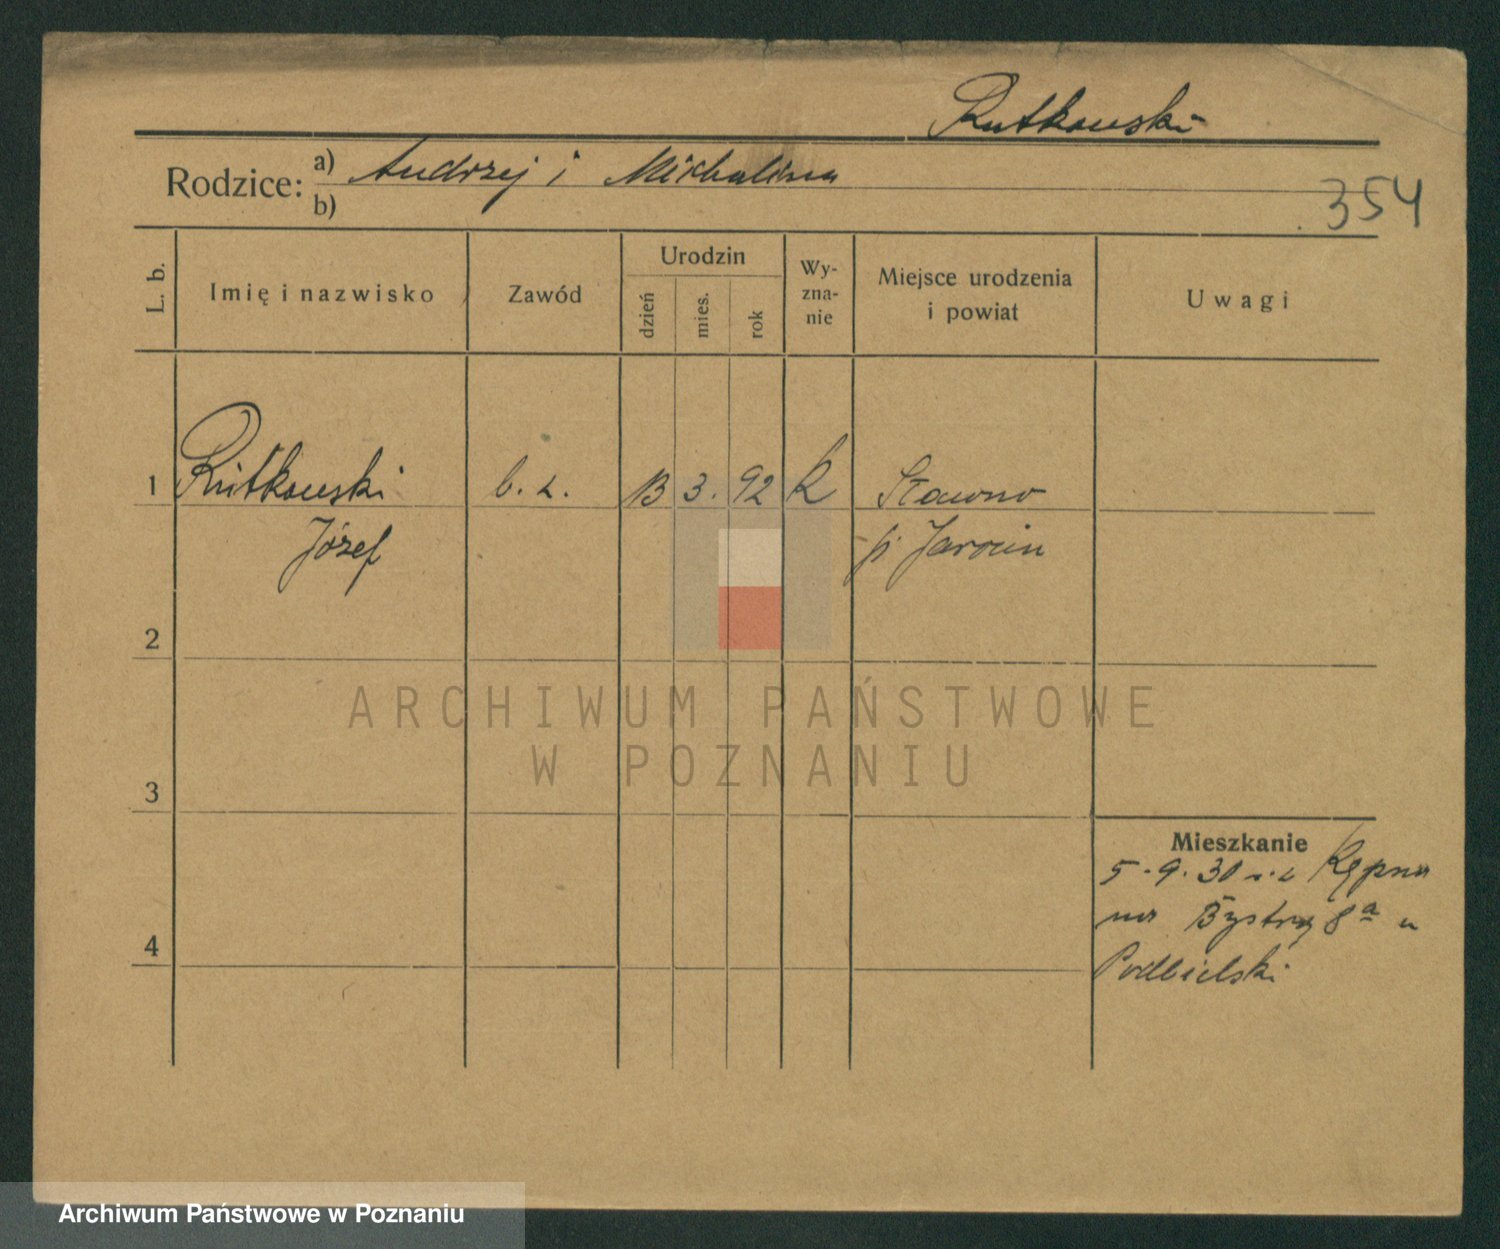 Rutkowski
Rodzice: a) Andrzej i Michalina
b)
354
L. b.
Imię i nazwisko
Zawód
Urodzin
dzień
mies.
rok
Wy-
zna-
nie
Miejsce urodzenia
i powiat
Uwagi
1 Rutkowski b. z. 13 3. 92 k Sławno
Józef p. Jarocin
2
3
4
Mieszkanie
5.9.30 Kępna
Bystrą 8a u
Podbielski
ARCHIWUM PAŃSTWOWE
W POZNANIU
Archiwum Państwowe w Poznaniu